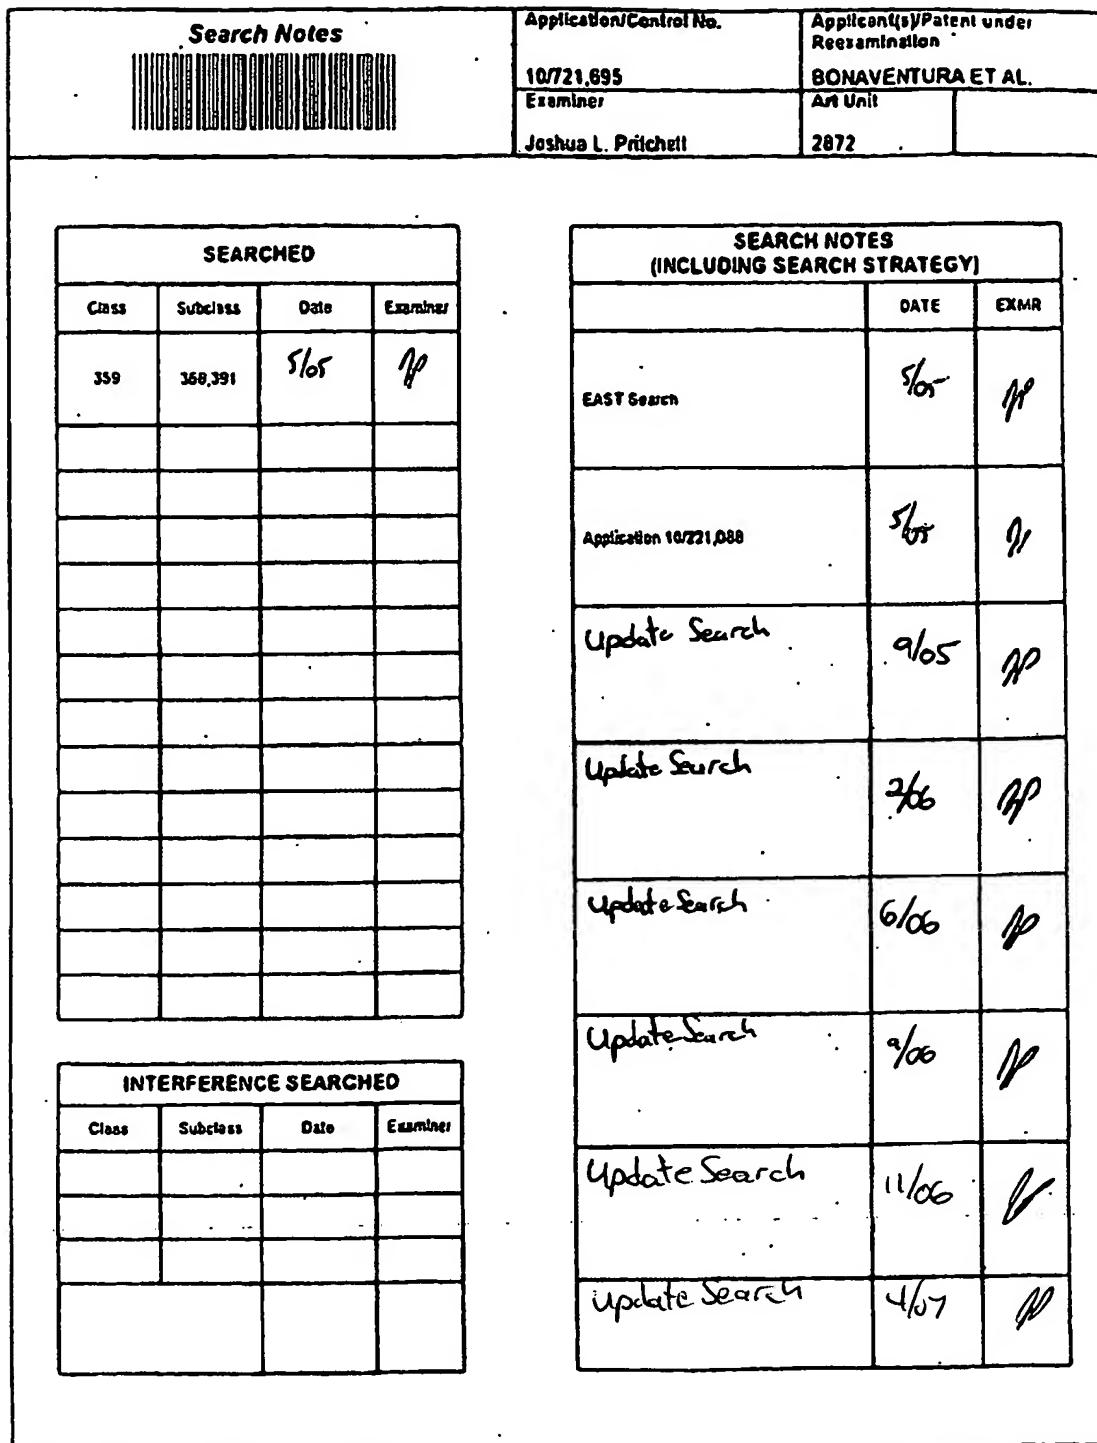 Search Notes
Application/Control No.
10/721,695
Applicant(s)/Patent under
Reexamination
BONAVENTURA ET AL.
Examiner
Joshua L. Pritchett
Art Unit
2872
SEARCHED
Class Subclass Date Examiner
359 368,391 5/05 JP
INTERFERENCE SEARCHED
Class Subclass Date Examiner
SEARCH NOTES
(INCLUDING SEARCH STRATEGY)
DATE EXMR
EAST Search 5/05 JP
Application 10/221,088 5/05
Update Search 9/05 JP
Update Search 2/06 JP
Update Search 6/06 JP
Update Search 9/06 JP
Update Search 11/06
Update Search 4/07 JP